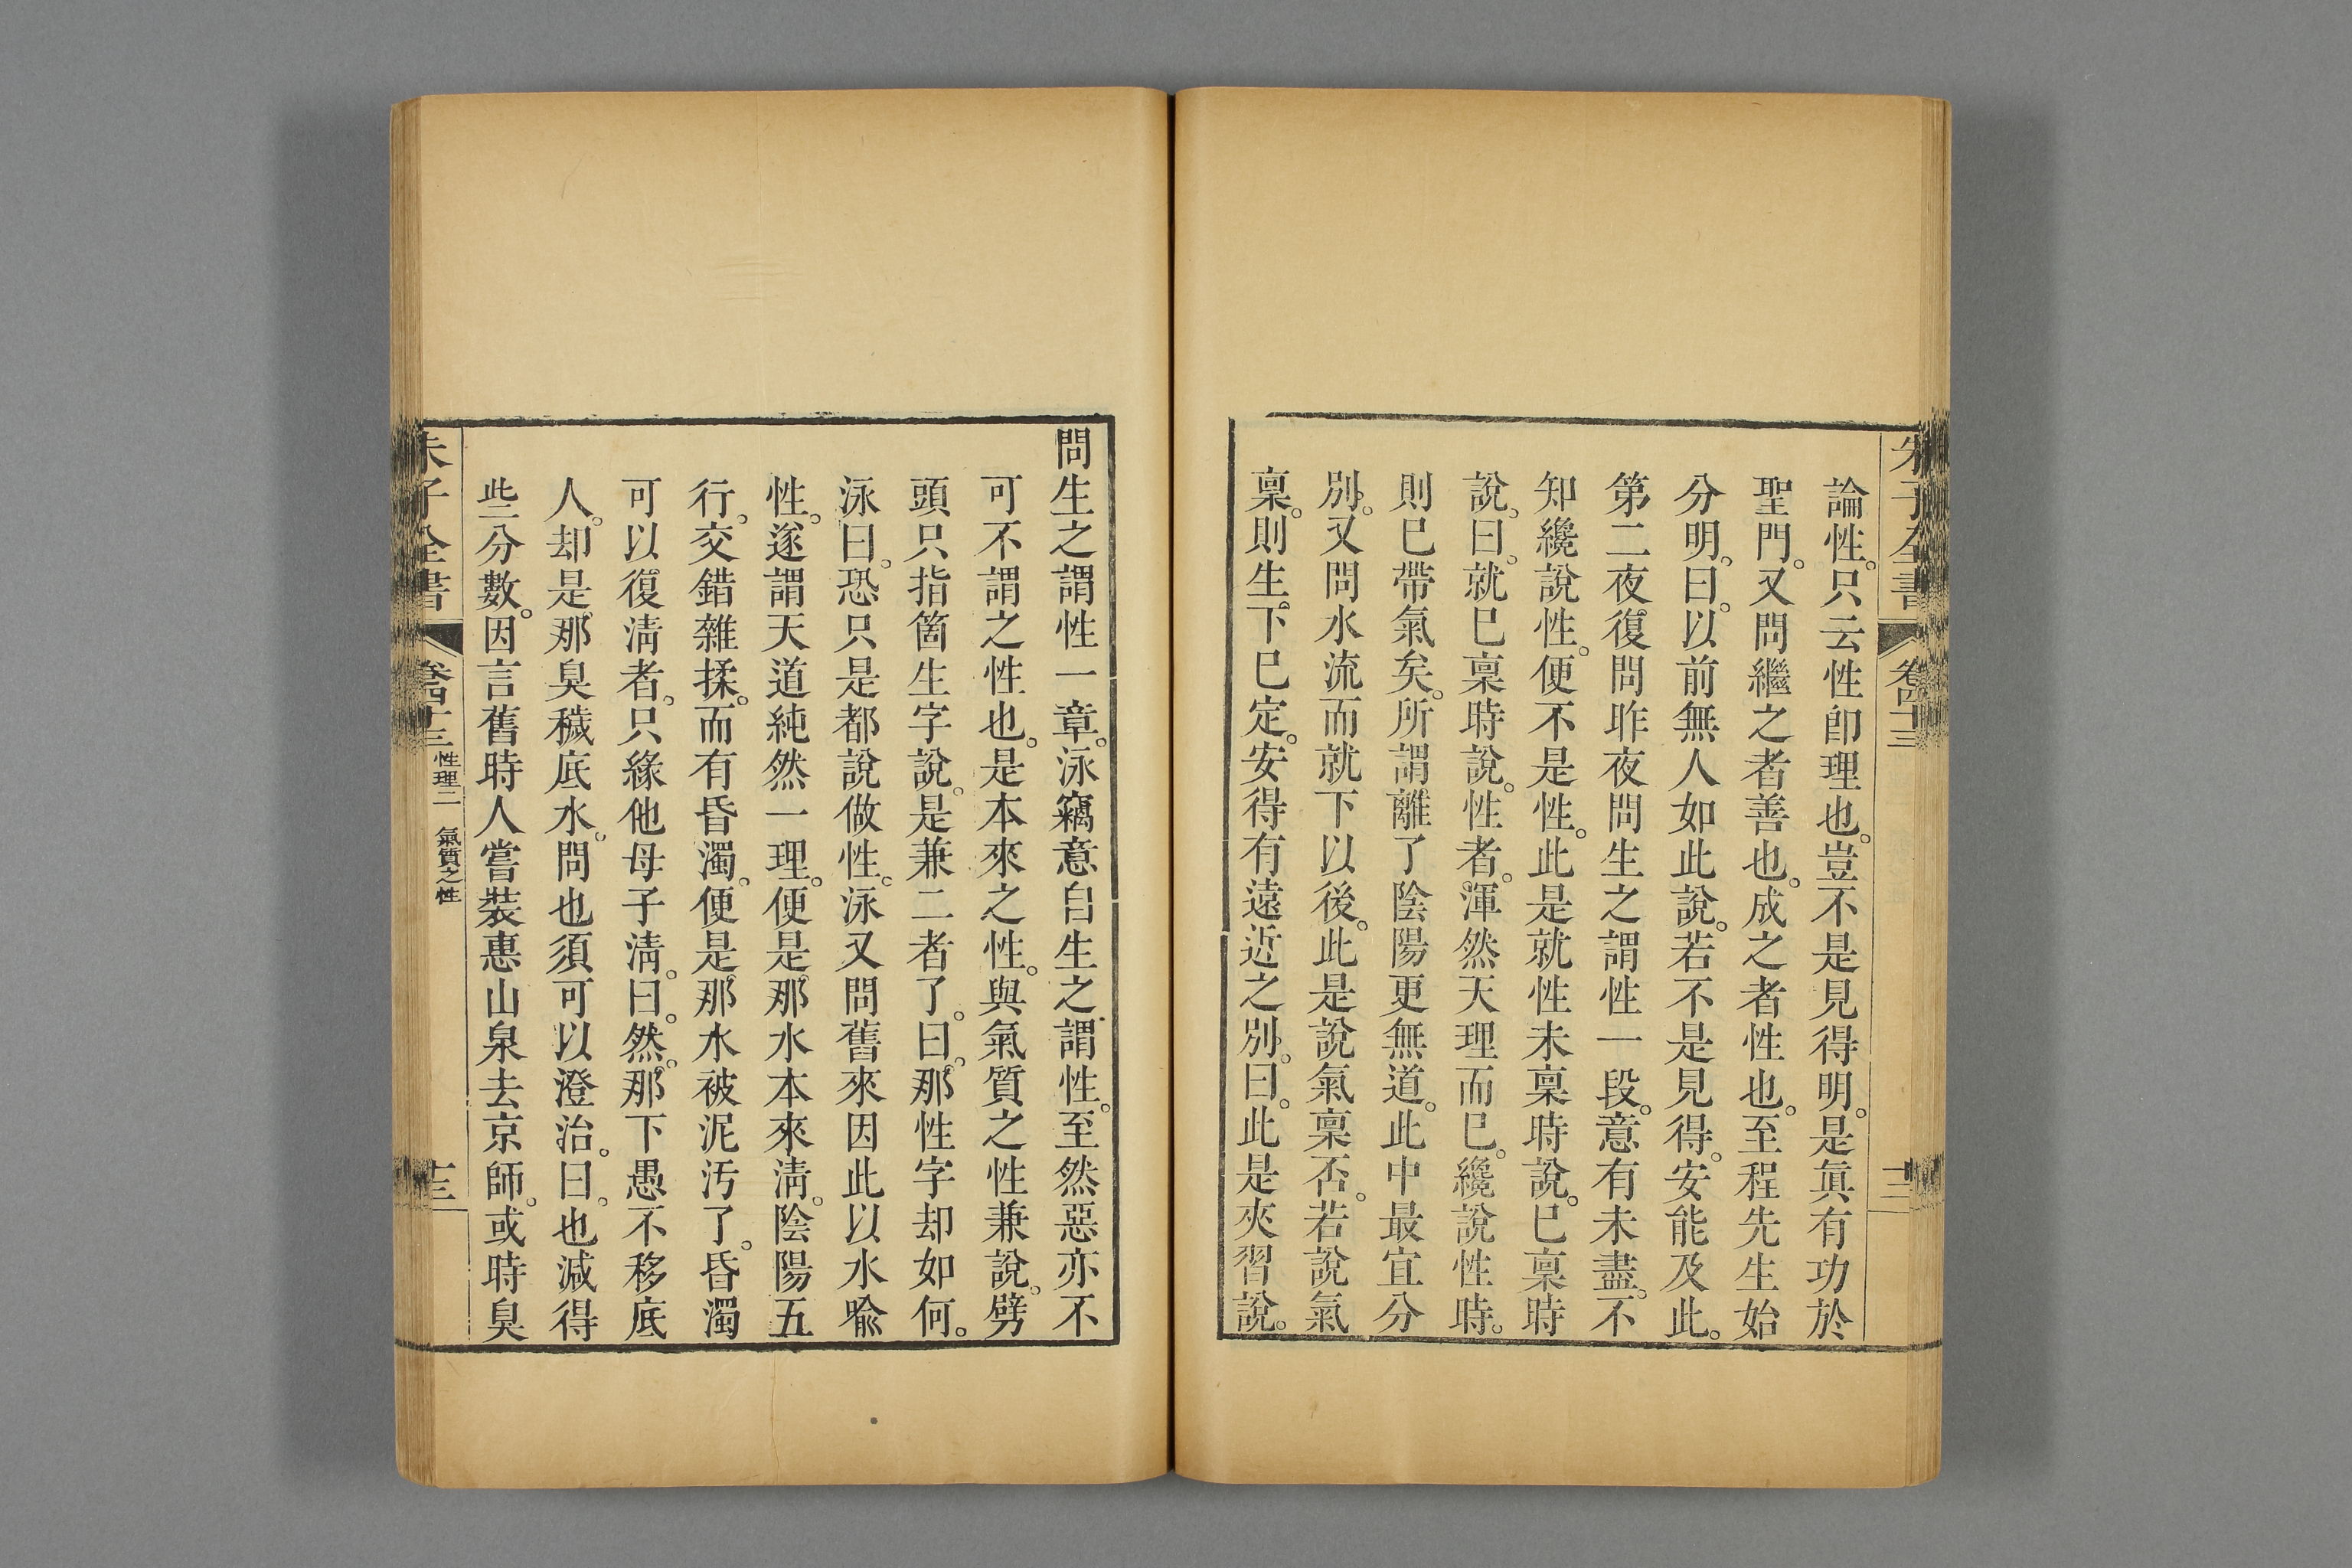 論性。只云性卽理也。豈不是見得明。是眞有功於
聖門。又問繼之者善也。成之者性也。至程先生始
分明。曰。以前無人如此說。若不是見得。安能及此。
第二夜復問昨夜問生之謂性一段。意有未盡。不
知纔說性。便不是性。此是就性未稟時說。已稟時
說。曰。就已稟時說。性者。渾然天理而已。纔說性時。
則已帶氣矣。所謂離了陰陽更無道。此中最宜分
別。又問水流而就下以後。此是說氣稟否。若說氣
稟。則生下已定。安得有遠近之別。曰。此是夾習說。
朱子全書
卷四十三
十二
問生之謂性一章。泳竊意自生之謂性。至然惡亦不
可不謂之性也。是本來之性。與氣質之性兼說。劈
頭只指箇生字說。是兼二者了。曰。那性字却如何。
泳曰。恐只是都說做性。泳又問舊來因此以水喩
性。遂謂天道純然一理。便是那水本來淸。陰陽五
行。交錯雜揉。而有昏濁。便是那水被泥汚了。昏濁
可以復淸者。只緣他母子淸。曰。然。那下愚不移底
人。却是那臭穢底水。問也須可以澄治。曰。也減得
些分數。因言舊時人嘗裝惠山泉去京師。或時臭
朱子全書
卷四十三
性理二 氣質之性
十三